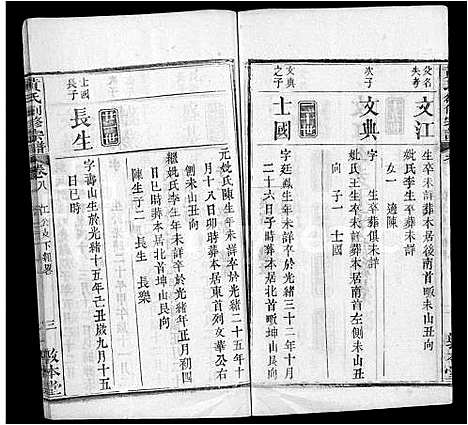 父名失考
文江
生卒未詳葬本居後南首畈未山丑向
妣氏李生卒葬未詳
女一 適陳
次子
文典
生卒葬俱未詳
妣氏王生卒未詳葬本居南首畈未山丑向
子一 士國
文典之子
士國
字廷鳳生年未詳卒於光緒三十二年十月
二十六日子時葬本居北首畈坤山艮向
元妣氏陳生年未詳卒於光緒二十五年十
月十八日卯時葬本居東首列文華公右
側未山丑向
繼妣氏李生年未詳卒於光緒 年正月初四
日巳時葬本居北首坤山艮向
陳生子二 長生 長樂
士國長子
長生
字壽山生於光緒十五年己丑歲九月十五
日巳時
黃氏創修宗譜
卷八
三
敦本堂